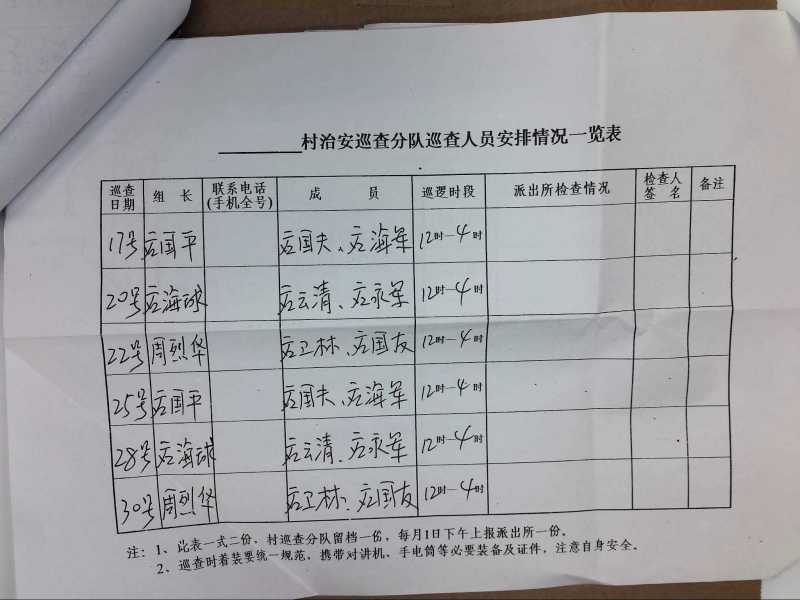 村治安巡查分队巡查人员安排情况一览表
巡查日期 组长 联系电话(手机全号) 成员 巡逻时段 派出所检查情况 检查人签名 备注
17号 后国平 后国夫、后海军 12时-4时
20号 后海球 后云清、后永军 12时-4时
22号 周烈华 后卫林、后国友 12时-4时
25号 后国平 后国夫、后海军 12时-4时
28号 后海球 后云清、后永军 12时-4时
30号 周烈华 后卫林、后国友 12时-4时
注：1、此表一式二份，村巡查分队留档一份，每月1日下午上报派出所一份。
2、巡查时着装要统一规范，携带对讲机、手电筒等必要装备及证件，注意自身安全。